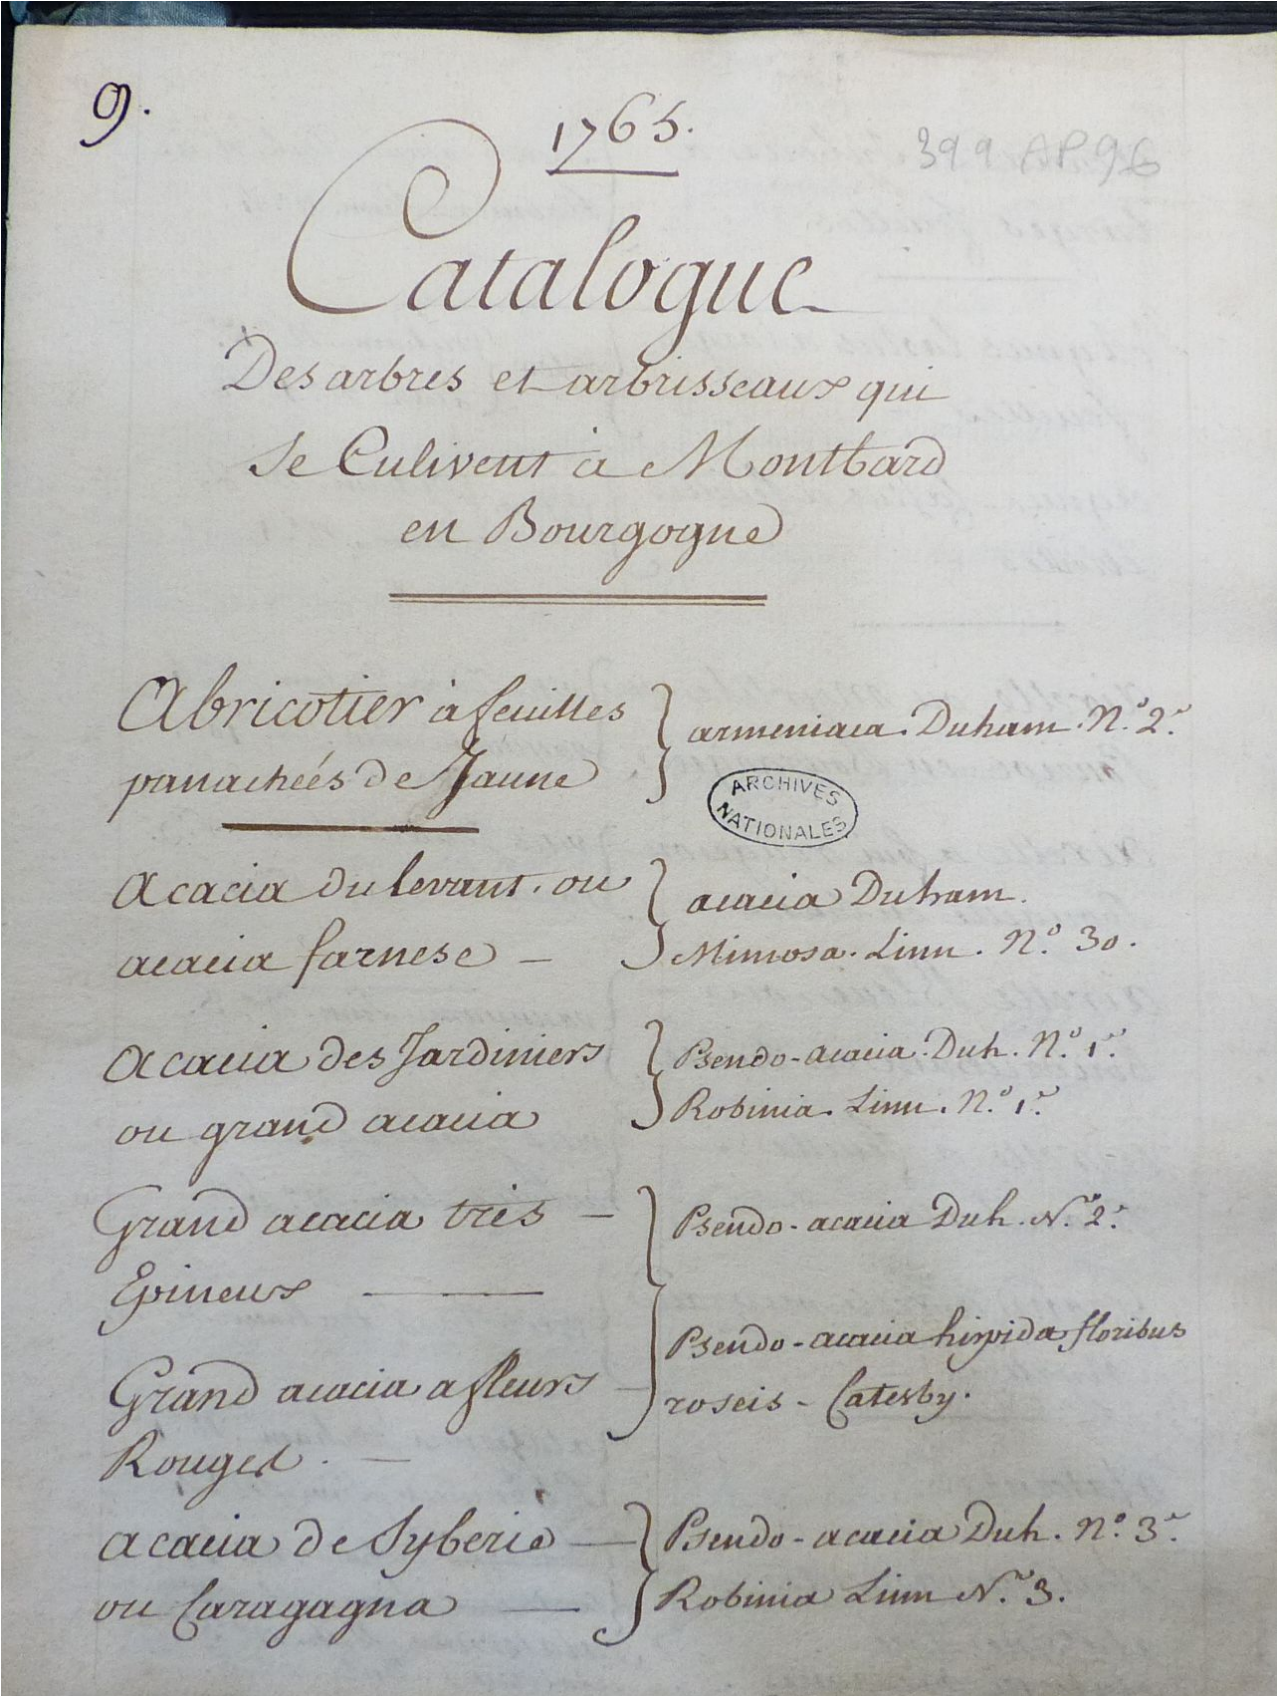 9.
1765.
399 AP 96
Catalogue
Des arbres et arbrisseaux qui
se Culivent à Montbard
en Bourgogne
Abricotier à feuilles
panacheés de Jaune
armeniaca. Duham. N.º 2.
ARCHIVES
NATIONALES
Acacia du levant. ou
acacia farnese -
acacia Duham.
Mimosa. Linn. N.º 30.
Acacia des Jardiniers
ou grand acacia
Pseudo-acacia. Duh. N.º 1.
Robinia. Linn. N.º 1.
Grand acacia très -
Epineux —
Pseudo-acacia Duh. N.º 2.
Grand acacia a fleurs -
Rouges. —
Pseudo-acacia hispida floribus
roseis - Catesby.
acacia de Syberie —
ou Caragagna —
Pseudo-acacia Duh. N.º 3.
Robinia Linn N.º 3.